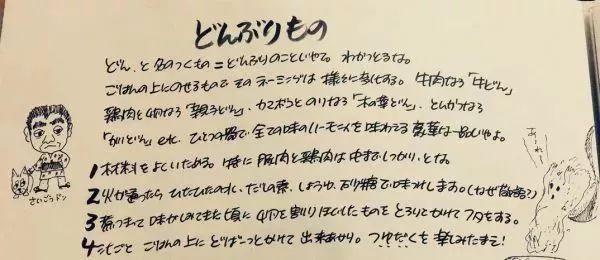 どんぶりもの
どん、と名のつくもの=どんぶりのことじゃて。わかっとるな。
ごはんの上にのせるもので そのネーミングは 様々に変化する。牛肉なら「牛どん」
鶏肉と卵なら「親子どん」、カマボコとのりなら「木の葉どん」、とんかつなら
「かつどん」etc. ひとつの鍋で全ての味のハーモニイを味わえる 豪華な一品じゃよ。
1 材料をよくいためる。特に豚肉と鶏肉は中までしっかり、とな。
2 火が通ったら ひたひたの水、だしの素、しょうゆ、砂糖で味つけします。(なぜ
3 煮つまって味がしみてきた頃に 卵を割りほぐしたものを とろりとかけて フタをする。
4 ごはんの上に どばーっとかけて 出来あがり。つゆだくを楽しみたまえ!
さいごうドン
あーれー